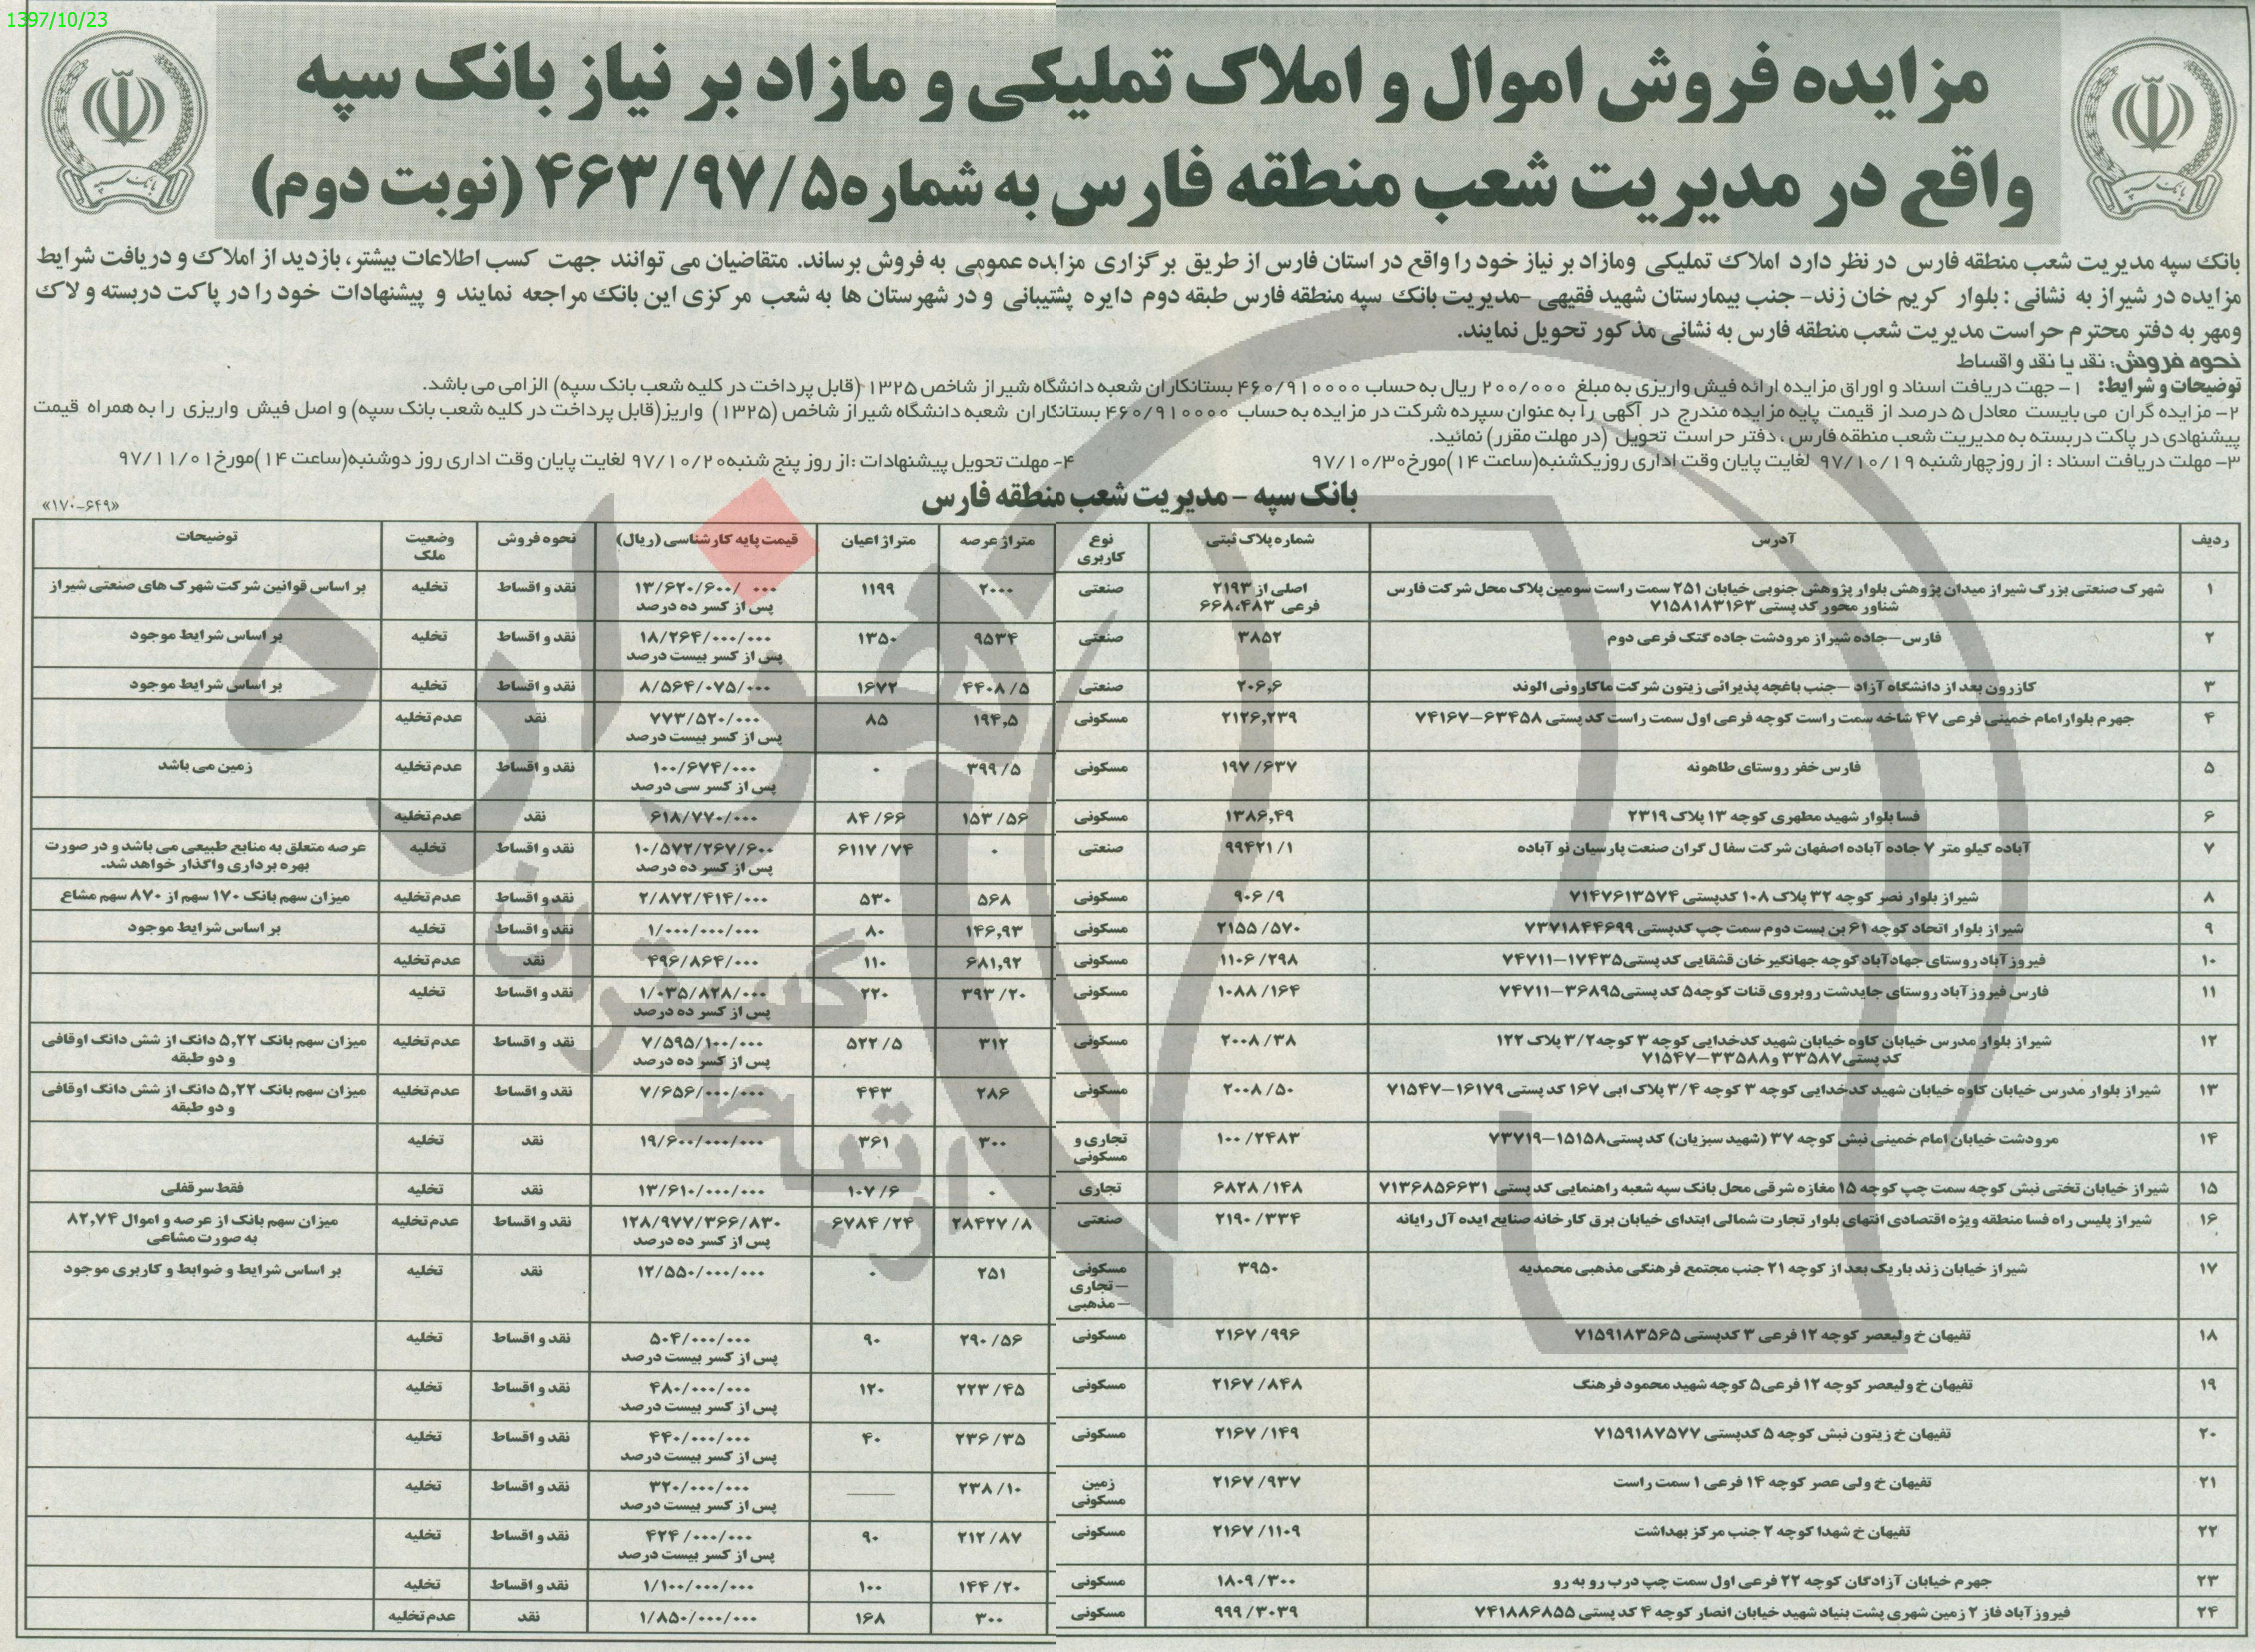 1397/10/23
مزایده فروش اموال و املاک تملیکی و مازاد بر نیاز بانک سپه
واقع در مدیریت شعب منطقه فارس به شماره ۴۶۳/۹۷/۵ (نوبت دوم)
بانک سپه
بانک سپه
بانک سپه مدیریت شعب منطقه فارس در نظر دارد املاک تملیکی ومازاد بر نیاز خود را واقع در استان فارس از طریق برگزاری مزایده عمومی به فروش برساند. متقاضیان می توانند جهت کسب اطلاعات بیشتر، بازدید از املاک و دریافت شرایط
مزایده در شیراز به نشانی : بلوار کریم خان زند- جنب بیمارستان شهید فقیهی -مدیریت بانک سپه منطقه فارس طبقه دوم دایره پشتیبانی و در شهرستان ها به شعب مرکزی این بانک مراجعه نمایند و پیشنهادات خود را در پاکت دربسته و لاک
ومهر به دفتر محترم حراست مدیریت شعب منطقه فارس به نشانی مذکور تحویل نمایند.
نحوه فروش: نقد یا نقد و اقساط
توضیحات و شرایط: ۱- جهت دریافت اسناد و اوراق مزایده ارائه فیش واریزی به مبلغ ۲۰۰/۰۰۰ ریال به حساب ۴۶۰/۹۱۰۰۰۰ بستانکاران شعبه دانشگاه شیراز شاخص ۱۳۲۵ (قابل پرداخت در کلیه شعب بانک سپه) الزامی می باشد.
۲- مزایده گران می بایست معادل ۵ درصد از قیمت پایه مزایده مندرج در آگهی را به عنوان سپرده شرکت در مزایده به حساب ۴۶۰/۹۱۰۰۰۰ بستانکاران شعبه دانشگاه شیراز شاخص (۱۳۲۵) واریز(قابل پرداخت در کلیه شعب بانک سپه) و اصل فیش واریزی را به همراه قیمت
پیشنهادی در پاکت دربسته به مدیریت شعب منطقه فارس ، دفتر حراست تحویل (در مهلت مقرر) نمائید.
۳- مهلت دریافت اسناد : از روزچهارشنبه ۹۷/۱۰/۱۹ لغایت پایان وقت اداری روزیکشنبه(ساعت ۱۴)مورخ۹۷/۱۰/۳۰ ۴- مهلت تحویل پیشنهادات :از روز پنج شنبه۹۷/۱۰/۲۰ لغایت پایان وقت اداری روز دوشنبه(ساعت ۱۴)مورخ۹۷/۱۱/۰۱
بانک سپه - مدیریت شعب منطقه فارس
«۱۷۰-۶۴۹»
ردیف آدرس شماره پلاک ثبتی نوع کاربری متراژ عرصه متراژ اعیان قیمت پایه کارشناسی (ریال) نحوه فروش وضعیت ملک توضیحات
۱ شهرک صنعتی بزرگ شیراز میدان پژوهش بلوار پژوهش جنوبی خیابان ۲۵۱ سمت راست سومین پلاک محل شرکت فارس شناور محور کد پستی ۷۱۵۸۱۸۳۱۶۳ اصلی از ۲۱۹۳ فرعی ۶۶۸،۴۸۳ صنعتی ۲۰۰۰ ۱۱۹۹ ۱۳/۶۲۰/۶۰۰/۰۰۰ پس از کسر ده درصد نقد و اقساط تخلیه بر اساس قوانین شرکت شهرک های صنعتی شیراز
۲ فارس–جاده شیراز مرودشت جاده گتک فرعی دوم ۳۸۵۲ صنعتی ۹۵۳۴ ۱۳۵۰ ۱۸/۲۶۴/۰۰۰/۰۰۰ پس از کسر بیست درصد نقد و اقساط تخلیه بر اساس شرایط موجود
۳ کازرون بعد از دانشگاه آزاد –جنب باغچه پذیرائی زیتون شرکت ماکارونی الوند ۲۰۶,۶ صنعتی ۴۴۰۸/۵ ۱۶۷۲ ۸/۵۶۴/۰۷۵/۰۰۰ نقد و اقساط تخلیه بر اساس شرایط موجود
۴ جهرم بلوارامام خمینی فرعی ۴۷ شاخه سمت راست کوچه فرعی اول سمت راست کد پستی ۶۳۴۵۸–۷۴۱۶۷ ۲۱۲۶,۲۳۹ مسکونی ۱۹۴,۵ ۸۵ ۷۷۳/۵۲۰/۰۰۰ پس از کسر بیست درصد نقد عدم تخلیه
۵ فارس خفر روستای طاهونه ۱۹۷/۶۳۷ مسکونی ۳۹۹/۵ ۰ ۱۰۰/۶۷۴/۰۰۰ پس از کسر سی درصد نقد و اقساط عدم تخلیه زمین می باشد
۶ فسا بلوار شهید مطهری کوچه ۱۳ پلاک ۲۳۱۹ ۱۳۸۶,۴۹ مسکونی ۱۵۳/۵۶ ۸۴/۶۶ ۶۱۸/۷۷۰/۰۰۰ نقد عدم تخلیه
۷ آباده کیلو متر ۷ جاده آباده اصفهان شرکت سفال گران صنعت پارسیان نو آباده ۹۹۴۲۱/۱ صنعتی ۰ ۶۱۱۷/۷۴ ۱۰/۵۷۲/۲۶۷/۶۰۰ پس از کسر ده درصد نقد و اقساط تخلیه عرصه متعلق به منابع طبیعی می باشد و در صورت بهره برداری واگذار خواهد شد.
۸ شیراز بلوار نصر کوچه ۳۲ پلاک ۱۰۸ کدپستی ۷۱۴۷۶۱۳۵۷۴ ۹۰۶/۹ مسکونی ۵۶۸ ۵۳۰ ۲/۸۷۲/۴۱۴/۰۰۰ نقد و اقساط عدم تخلیه میزان سهم بانک ۱۷۰ سهم از ۸۷۰ سهم مشاع
۹ شیراز بلوار اتحاد کوچه ۶۱ بن بست دوم سمت چپ کدپستی ۷۳۷۱۸۴۴۶۹۹ ۲۱۵۵/۵۷۰ مسکونی ۱۴۶,۹۳ ۸۰ ۱/۰۰۰/۰۰۰/۰۰۰ نقد و اقساط تخلیه بر اساس شرایط موجود
۱۰ فیروزآباد روستای جهادآباد کوچه جهانگیرخان قشقایی کد پستی۱۷۴۳۵–۷۴۷۱۱ ۱۱۰۶/۲۹۸ مسکونی ۶۸۱,۹۲ ۱۱۰ ۴۹۶/۸۶۴/۰۰۰ نقد عدم تخلیه
۱۱ فارس فیروزآباد روستای جایدشت روبروی قنات کوچه۵ کد پستی۳۶۸۹۵–۷۴۷۱۱ ۱۰۸۸/۱۶۴ مسکونی ۳۹۳/۲۰ ۲۲۰ ۱/۰۳۵/۸۲۸/۰۰۰ پس از کسر ده درصد نقد و اقساط تخلیه
۱۲ شیراز بلوار مدرس خیابان کاوه خیابان شهید کدخدایی کوچه ۳ کوچه۳/۲ پلاک ۱۲۲ کد پستی۳۳۵۸۷ و۳۳۵۸۸–۷۱۵۴۷ ۲۰۰۸/۳۸ مسکونی ۳۱۲ ۵۲۲/۵ ۷/۵۹۵/۱۰۰/۰۰۰ پس از کسر ده درصد نقد و اقساط عدم تخلیه میزان سهم بانک ۵,۲۲ دانگ از شش دانگ اوقافی و دو طبقه
۱۳ شیراز بلوار مدرس خیابان کاوه خیابان شهید کدخدایی کوچه ۳ کوچه ۳/۴ پلاک ابی ۱۶۷ کد پستی ۱۶۱۷۹–۷۱۵۴۷ ۲۰۰۸/۵۰ مسکونی ۲۸۶ ۴۴۳ ۷/۶۵۶/۰۰۰/۰۰۰ نقد و اقساط عدم تخلیه میزان سهم بانک ۵,۲۲ دانگ از شش دانگ اوقافی و دو طبقه
۱۴ مرودشت خیابان امام خمینی نبش کوچه ۳۷ (شهید سبزیان) کد پستی۱۵۱۵۸–۷۳۷۱۹ ۱۰۰/۲۴۸۳ تجاری و مسکونی ۳۰۰ ۳۶۱ ۱۹/۶۰۰/۰۰۰/۰۰۰ نقد تخلیه
۱۵ شیراز خیابان تختی نبش کوچه سمت چپ کوچه ۱۵ مغازه شرقی محل بانک سپه شعبه راهنمایی کد پستی ۷۱۳۶۸۵۶۶۳۱ ۶۸۲۸/۱۴۸ تجاری ۰ ۱۰۷/۶ ۱۳/۶۱۰/۰۰۰/۰۰۰ نقد تخلیه فقط سرقفلی
۱۶ شیراز پلیس راه فسا منطقه ویژه اقتصادی انتهای بلوار تجارت شمالی ابتدای خیابان برق کارخانه صنایع ایده آل رایانه ۲۱۹۰/۳۳۴ صنعتی ۲۸۴۲۷/۸ ۶۷۸۴/۲۴ ۱۲۸/۹۷۷/۳۶۶/۸۳۰ پس از کسر ده درصد نقد و اقساط عدم تخلیه میزان سهم بانک از عرصه و اموال ۸۲,۷۴ به صورت مشاعی
۱۷ شیراز خیابان زند باریک بعد از کوچه ۲۱ جنب مجتمع فرهنگی مذهبی محمدیه ۳۹۵۰ مسکونی –تجاری –مذهبی ۲۵۱ ۰ ۱۲/۵۵۰/۰۰۰/۰۰۰ نقد تخلیه بر اساس شرایط و ضوابط و کاربری موجود
۱۸ تفیهان خ ولیعصر کوچه ۱۲ فرعی ۳ کدپستی ۷۱۵۹۱۸۳۵۶۵ ۲۱۶۷/۹۹۶ مسکونی ۲۹۰/۵۶ ۹۰ ۵۰۴/۰۰۰/۰۰۰ پس از کسر بیست درصد نقد و اقساط تخلیه
۱۹ تفیهان خ ولیعصر کوچه ۱۲ فرعی۵ کوچه شهید محمود فرهنگ ۲۱۶۷/۸۴۸ مسکونی ۲۲۳/۴۵ ۱۲۰ ۴۸۰/۰۰۰/۰۰۰ پس از کسر بیست درصد نقد و اقساط تخلیه
۲۰ تفیهان خ زیتون نبش کوچه ۵ کدپستی ۷۱۵۹۱۸۷۵۷۷ ۲۱۶۷/۱۴۹ مسکونی ۲۳۶/۳۵ ۴۰ ۴۴۰/۰۰۰/۰۰۰ پس از کسر بیست درصد نقد و اقساط تخلیه
۲۱ تفیهان خ ولی عصر کوچه ۱۴ فرعی ۱ سمت راست ۲۱۶۷/۹۳۷ زمین مسکونی ۲۳۸/۱۰ —— ۳۲۰/۰۰۰/۰۰۰ پس از کسر بیست درصد نقد و اقساط تخلیه
۲۲ تفیهان خ شهدا کوچه ۲ جنب مرکز بهداشت ۲۱۶۷/۱۱۰۹ مسکونی ۲۱۲/۸۷ ۹۰ ۴۲۴/۰۰۰/۰۰۰ پس از کسر بیست درصد نقد و اقساط تخلیه
۲۳ جهرم خیابان آزادگان کوچه ۲۲ فرعی اول سمت چپ درب رو به رو ۱۸۰۹/۳۰۰ مسکونی ۱۴۴/۲۰ ۱۰۰ ۱/۱۰۰/۰۰۰/۰۰۰ نقد و اقساط تخلیه
۲۴ فیروزآباد فاز ۲ زمین شهری پشت بنیاد شهید خیابان انصار کوچه ۴ کد پستی ۷۴۱۸۸۶۸۵۵ ۹۹۹/۳۰۳۹ مسکونی ۳۰۰ ۱۶۸ ۱/۸۵۰/۰۰۰/۰۰۰ نقد عدم تخلیه